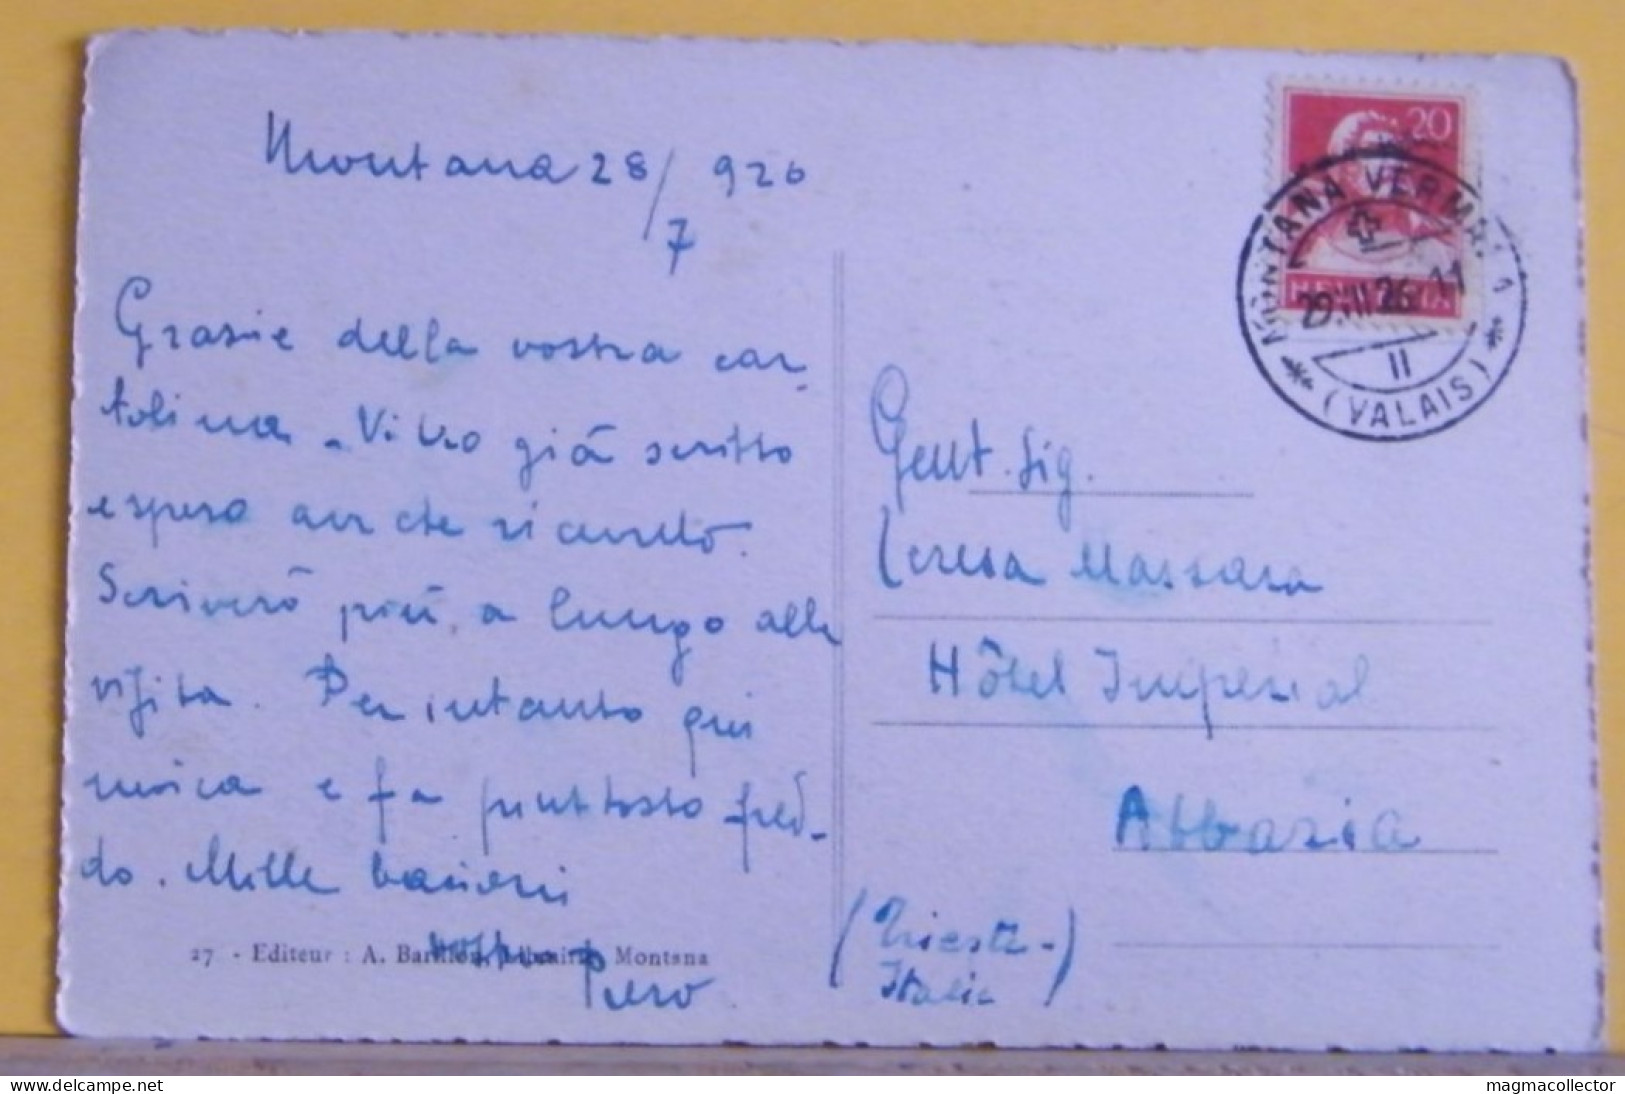 Montana 28/7 926
Grazie della vostra car-
tolina - Vi ho già scritto
e spero anche riceverlò.
Scriverò più a lungo alla
visita. Per intanto qui
nevica e fa piuttosto fred-
do. Mille bacioni
vostro Piero
27 - Editeur : A. Barillon, Librairie, Montana
20
HELVETIA
MONTANA VERMALA 1
29.VII.26 - 11
II
(VALAIS)
Gent. Sig.
Teresa Massara
Hôtel Imperial
Abbazia
(Trieste -)
Italia
magmacollector
www.delcampe.net